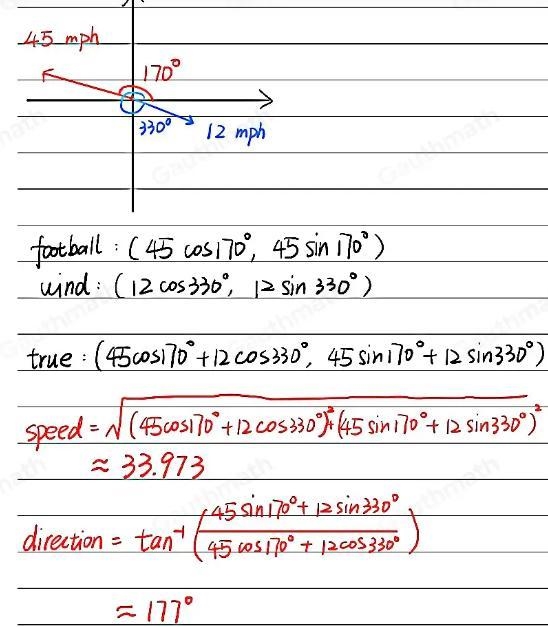 45 mph
170°
330° 12 mph
football : (45 cos170°, 45 sin 170°)
wind : (12 cos 330°, 12 sin 330°)
true : (45cos170°+12cos330°, 45sin170°+12sin330°)
speed = √((45cos170°+12cos330°)²+(45sin170°+12sin330°)²)
≈ 33.973
direction = tan⁻¹((45sin170°+12sin330°)/(45cos170°+12cos330°))
≈ 177°
Gauthmath